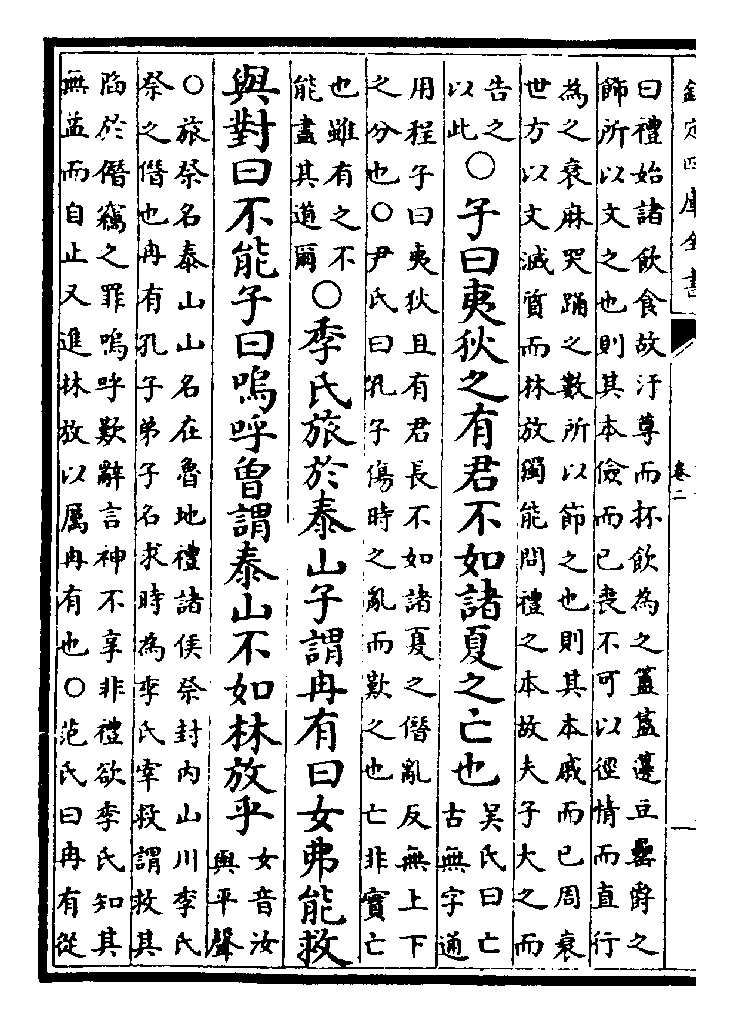 欽定四庫全書
卷二
曰禮始諸飲食故汙尊而抔飲為之簠簋籩豆罍爵之
飾所以文之也則其本儉而已喪不可以徑情而直行
為之衰麻哭踊之數所以節之也則其本戚而已周衰
世方以文滅質而林放獨能問禮之本故夫子大之而
告之
以此○子曰夷狄之有君不如諸夏之亡也吳氏曰亡
古無字通
用程子曰夷狄且有君長不如諸夏之僭亂反無上下
之分也○尹氏曰孔子傷時之亂而歎之也亡非實亡
也雖有之不
能盡其道爾○季氏旅於泰山子謂冉有曰女弗能救
與對曰不能子曰嗚呼曾謂泰山不如林放乎女音汝
與平聲
○旅祭名泰山山名在魯地禮諸侯祭封內山川季氏
祭之僭也冉有孔子弟子名求時為季氏宰救謂救其
陷於僭竊之罪嗚呼歎辭言神不享非禮欲季氏知其
無益而自止又進林放以厲冉有也○范氏曰冉有從